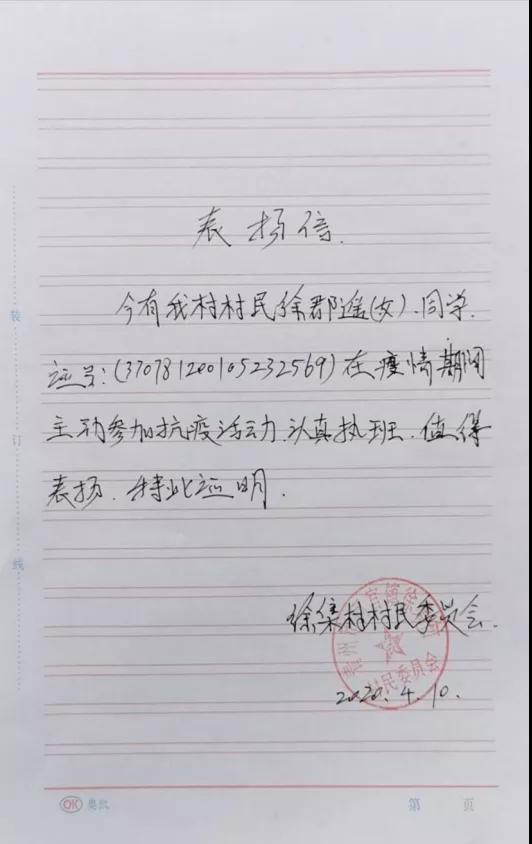 表扬信.
今有我村村民徐郡遥(女).同学.
证号:(370781200105232569)在疫情期间
主动参加抗疫活动.认真执班.值得
表扬.特此证明.
徐集村村民委员会.
村民委员会
2020.4.10.
装
订
线
OK 奥凯
第 页